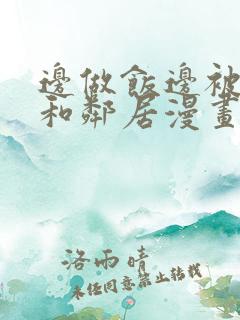 邊做飯邊被
和鄰居漫畫
洛雨晴
未经同意禁止转载